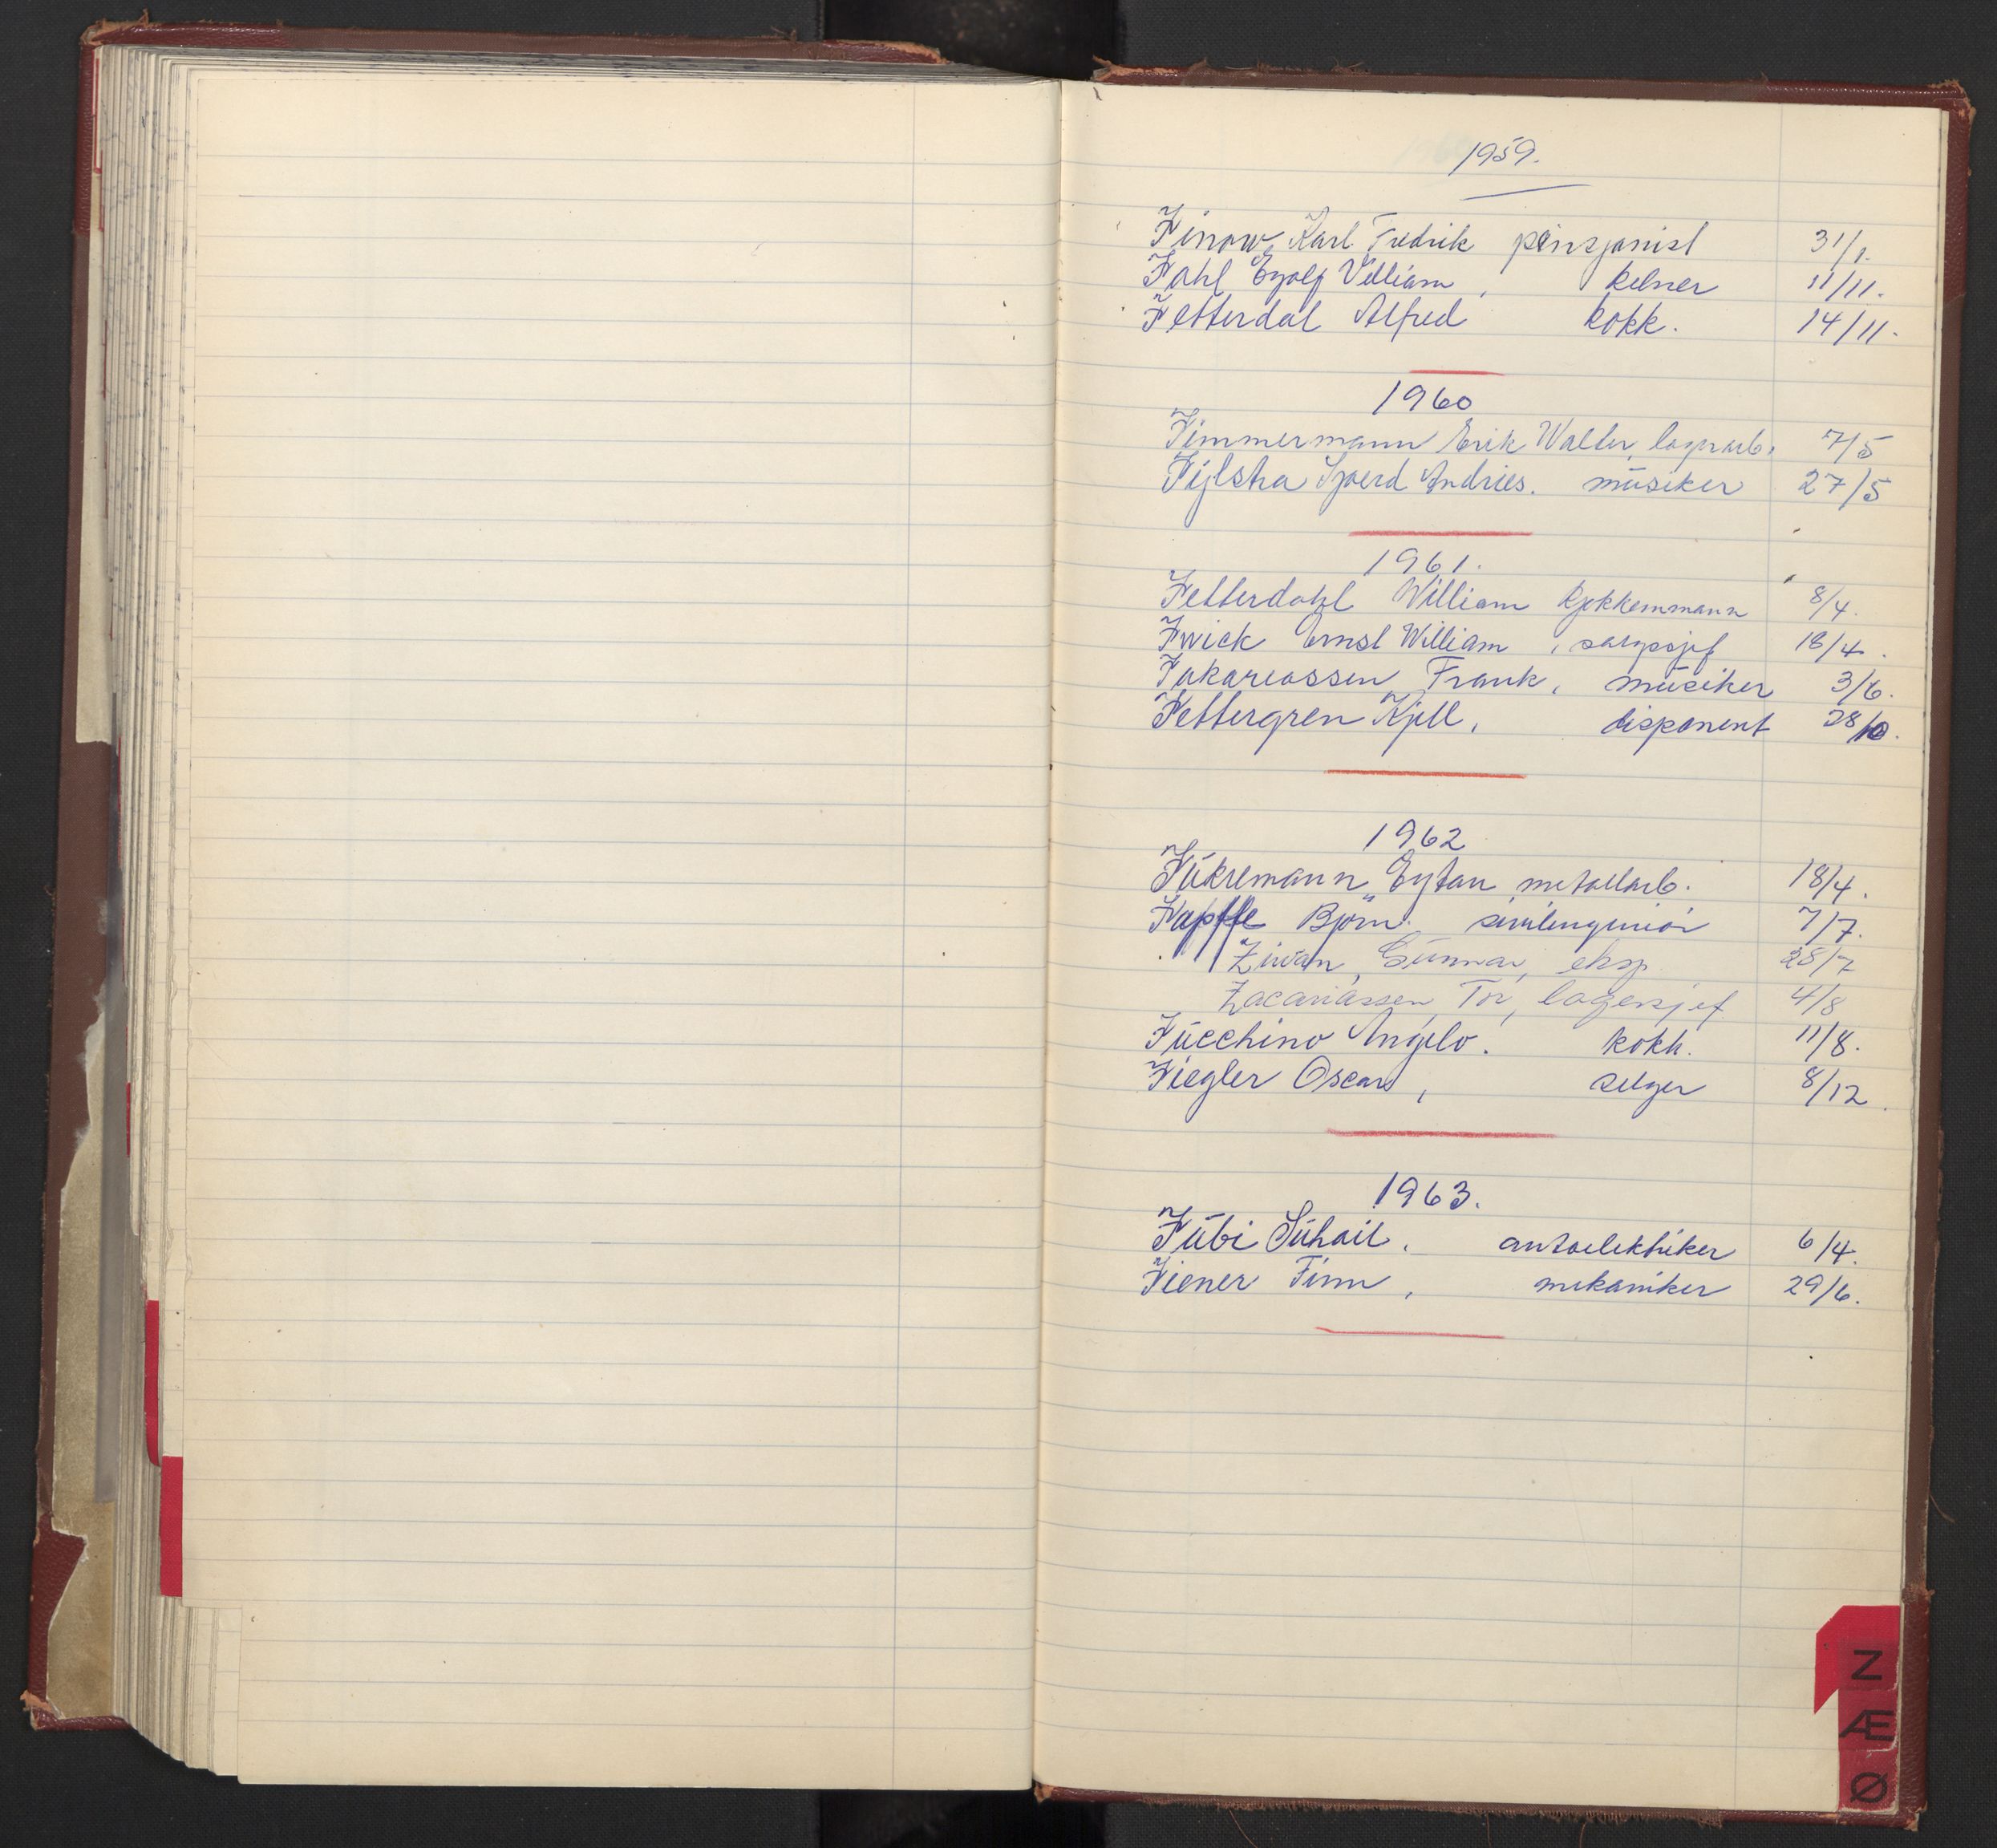 1959.
Zinow, Karl Fredrik pensjonist 31/1.
Zahl Eyolf Villiam, kelner 11/11.
Zetterdal Alfred kokk. 14/11.
1960
Zimmermann Erik Walter, lagerarb. 7/5
Zijlstra Sjoerd Andries. musiker 27/5
1961.
Zetterdahl William kjøkkenmann 8/4.
Zwick Ernst William, salgssjef 18/4.
Zakariassen Frank, musiker 3/6.
Zettergren Kjell, disponent 28/10.
1962
Zukremann, Eytan metallarb. 18/4.
Zapffe Bjørn. sivilingeniør 7/7.
Ziwan, Gunnar, eksp 28/7
Zacariassen, Tor, lagersjef 4/8
Zucchino Angelo. kokk. 11/8.
Ziegler Oscar, selger 8/12.
1963.
Zubi Suhail. autoelektriker 6/4.
Ziener Finn, mekaniker 29/6.
Z
Æ
Ø